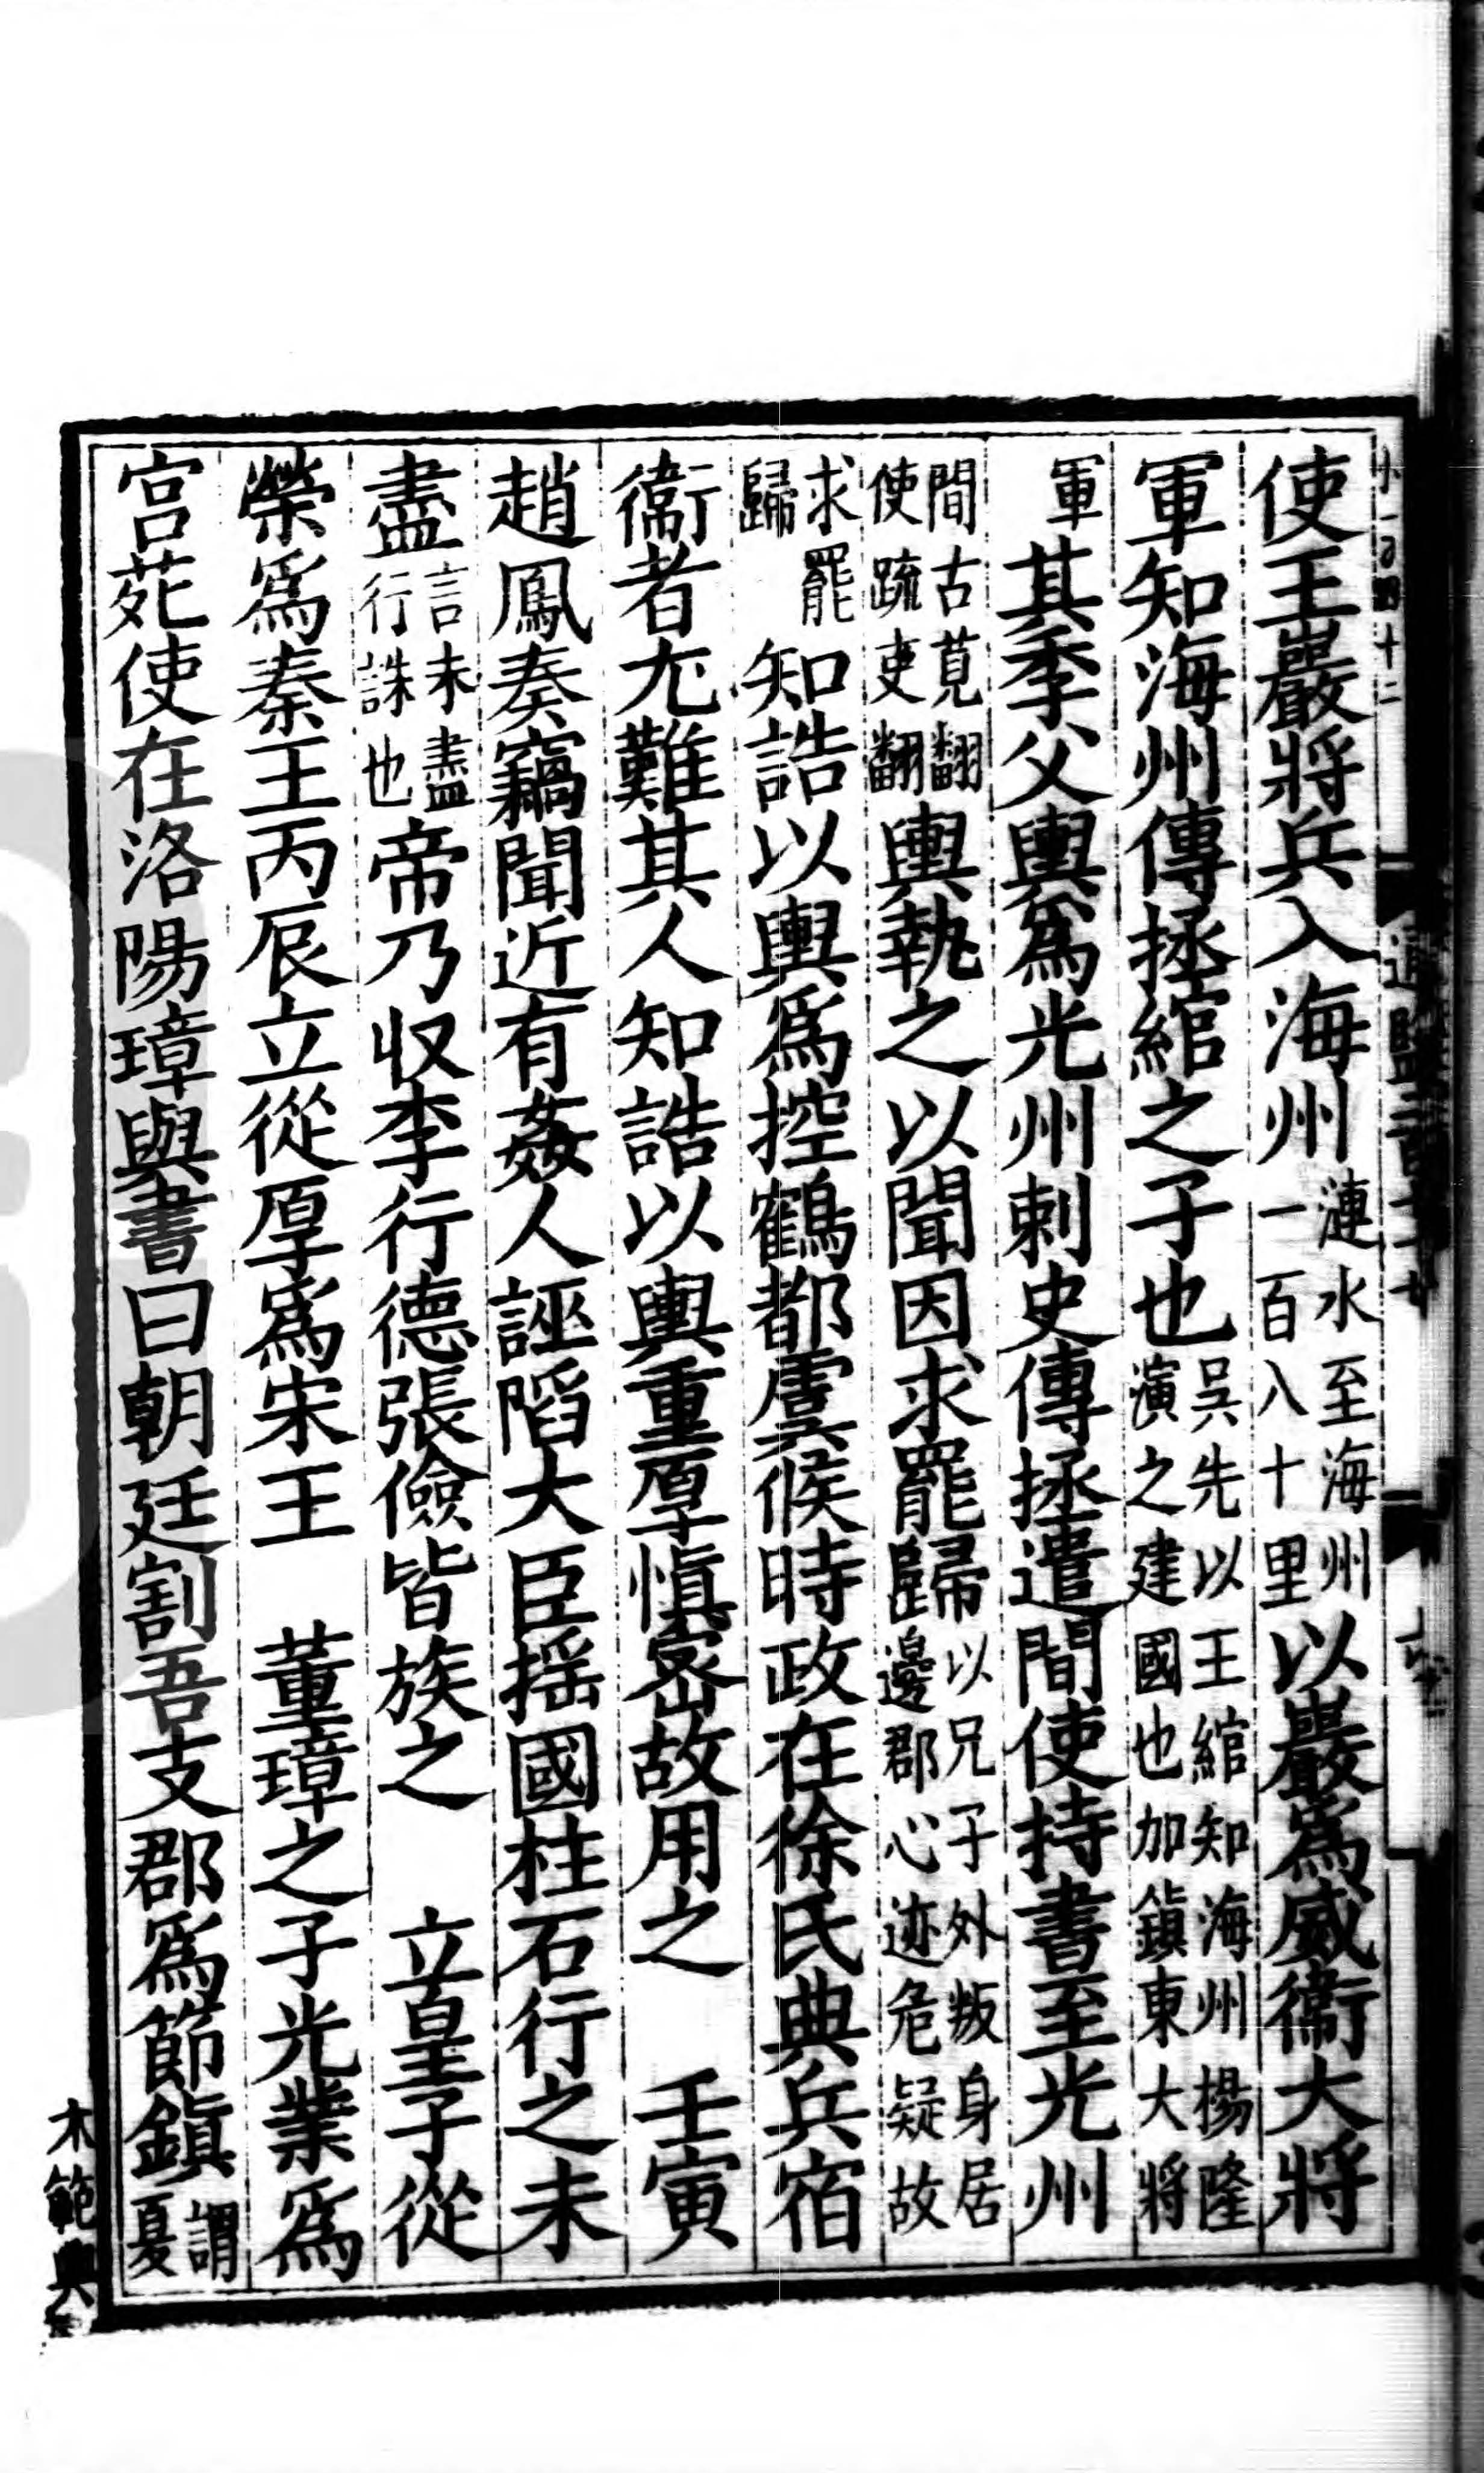 使王巖將兵入海州漣水至海州一百八十里以巖爲威衞大將
軍知海州傳拯綰之子也吳先以王綰知海州楊隆演之建國也加鎮東大將
軍其季父輿爲光州刺史傳拯遣間使持書至光州
間古莧翻使疏吏翻輿執之以聞因求罷歸以兄子外叛身居邊郡心迹危疑故
求罷歸知誥以輿爲控鶴都虞候時政在徐氏典兵宿
衞者尤難其人知誥以輿重厚慎宻故用之　壬寅
趙鳳奏竊聞近有姦人誣䧟大臣揺國柱石行之未
盡言未盡行誅也帝乃収李行德張儉皆族之　立皇子從
榮爲秦王丙辰立從厚爲宋王　董璋之子光業爲
宫苑使在洛陽璋與書曰朝廷割吾支郡爲節鎮謂夏